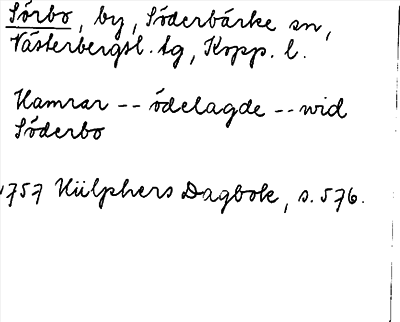 Sörbo, by, Söderbärke sn,
Västerbergsl. tg, Kopp. l.
Hamrar -- ödelagde -- wid
Söderbo
1757 Hülphers Dagbok, s. 576.